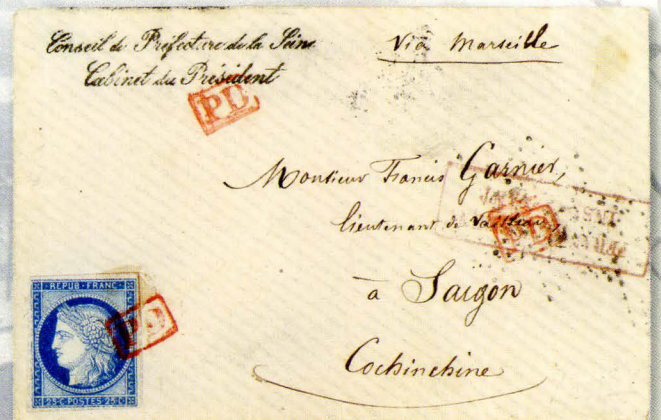 Conseil de Préfecture de la Seine
Cabinet du Président
Via Marseille
PD
Monsieur Francis Garnier,
lieutenant de Vaisseau,
PD
à Saigon
Cochinchine
REPUB·FRANC·
PD
25·C·POSTES·25·C